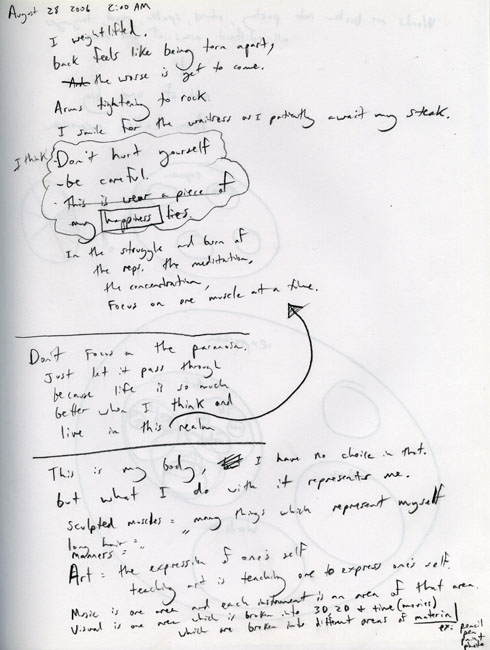 August 28 2006 2:00 AM
I weightlifted.
back feels like being torn apart,
And the worse is yet to come.
Arms tightening to rock
I smile for the waitress as I patiently await my steak.
I think
Don't hurt yourself
- be careful.
This is wear a piece of
my happiness lies
In the struggle and burn of
the reps. the meditation,
the concentration,
Focus on one muscle at a time.
Don't Focus on the paranoia.
Just let it pass through
because life is so much
better when I think and
live in this realm
This is my body, I have no choice in that.
but what I do with it represents me.
sculpted muscles = many things which represent myself
long hair = "
manners = "
Art = the expression of one's self
teaching art is teaching one to express one's self.
Music is one area and each instrument is an area of that area.
Visual is one area which is broken into 3D 2D & time (movies)
which are broken into different areas of material
ex: pencil
pen
paint
photo